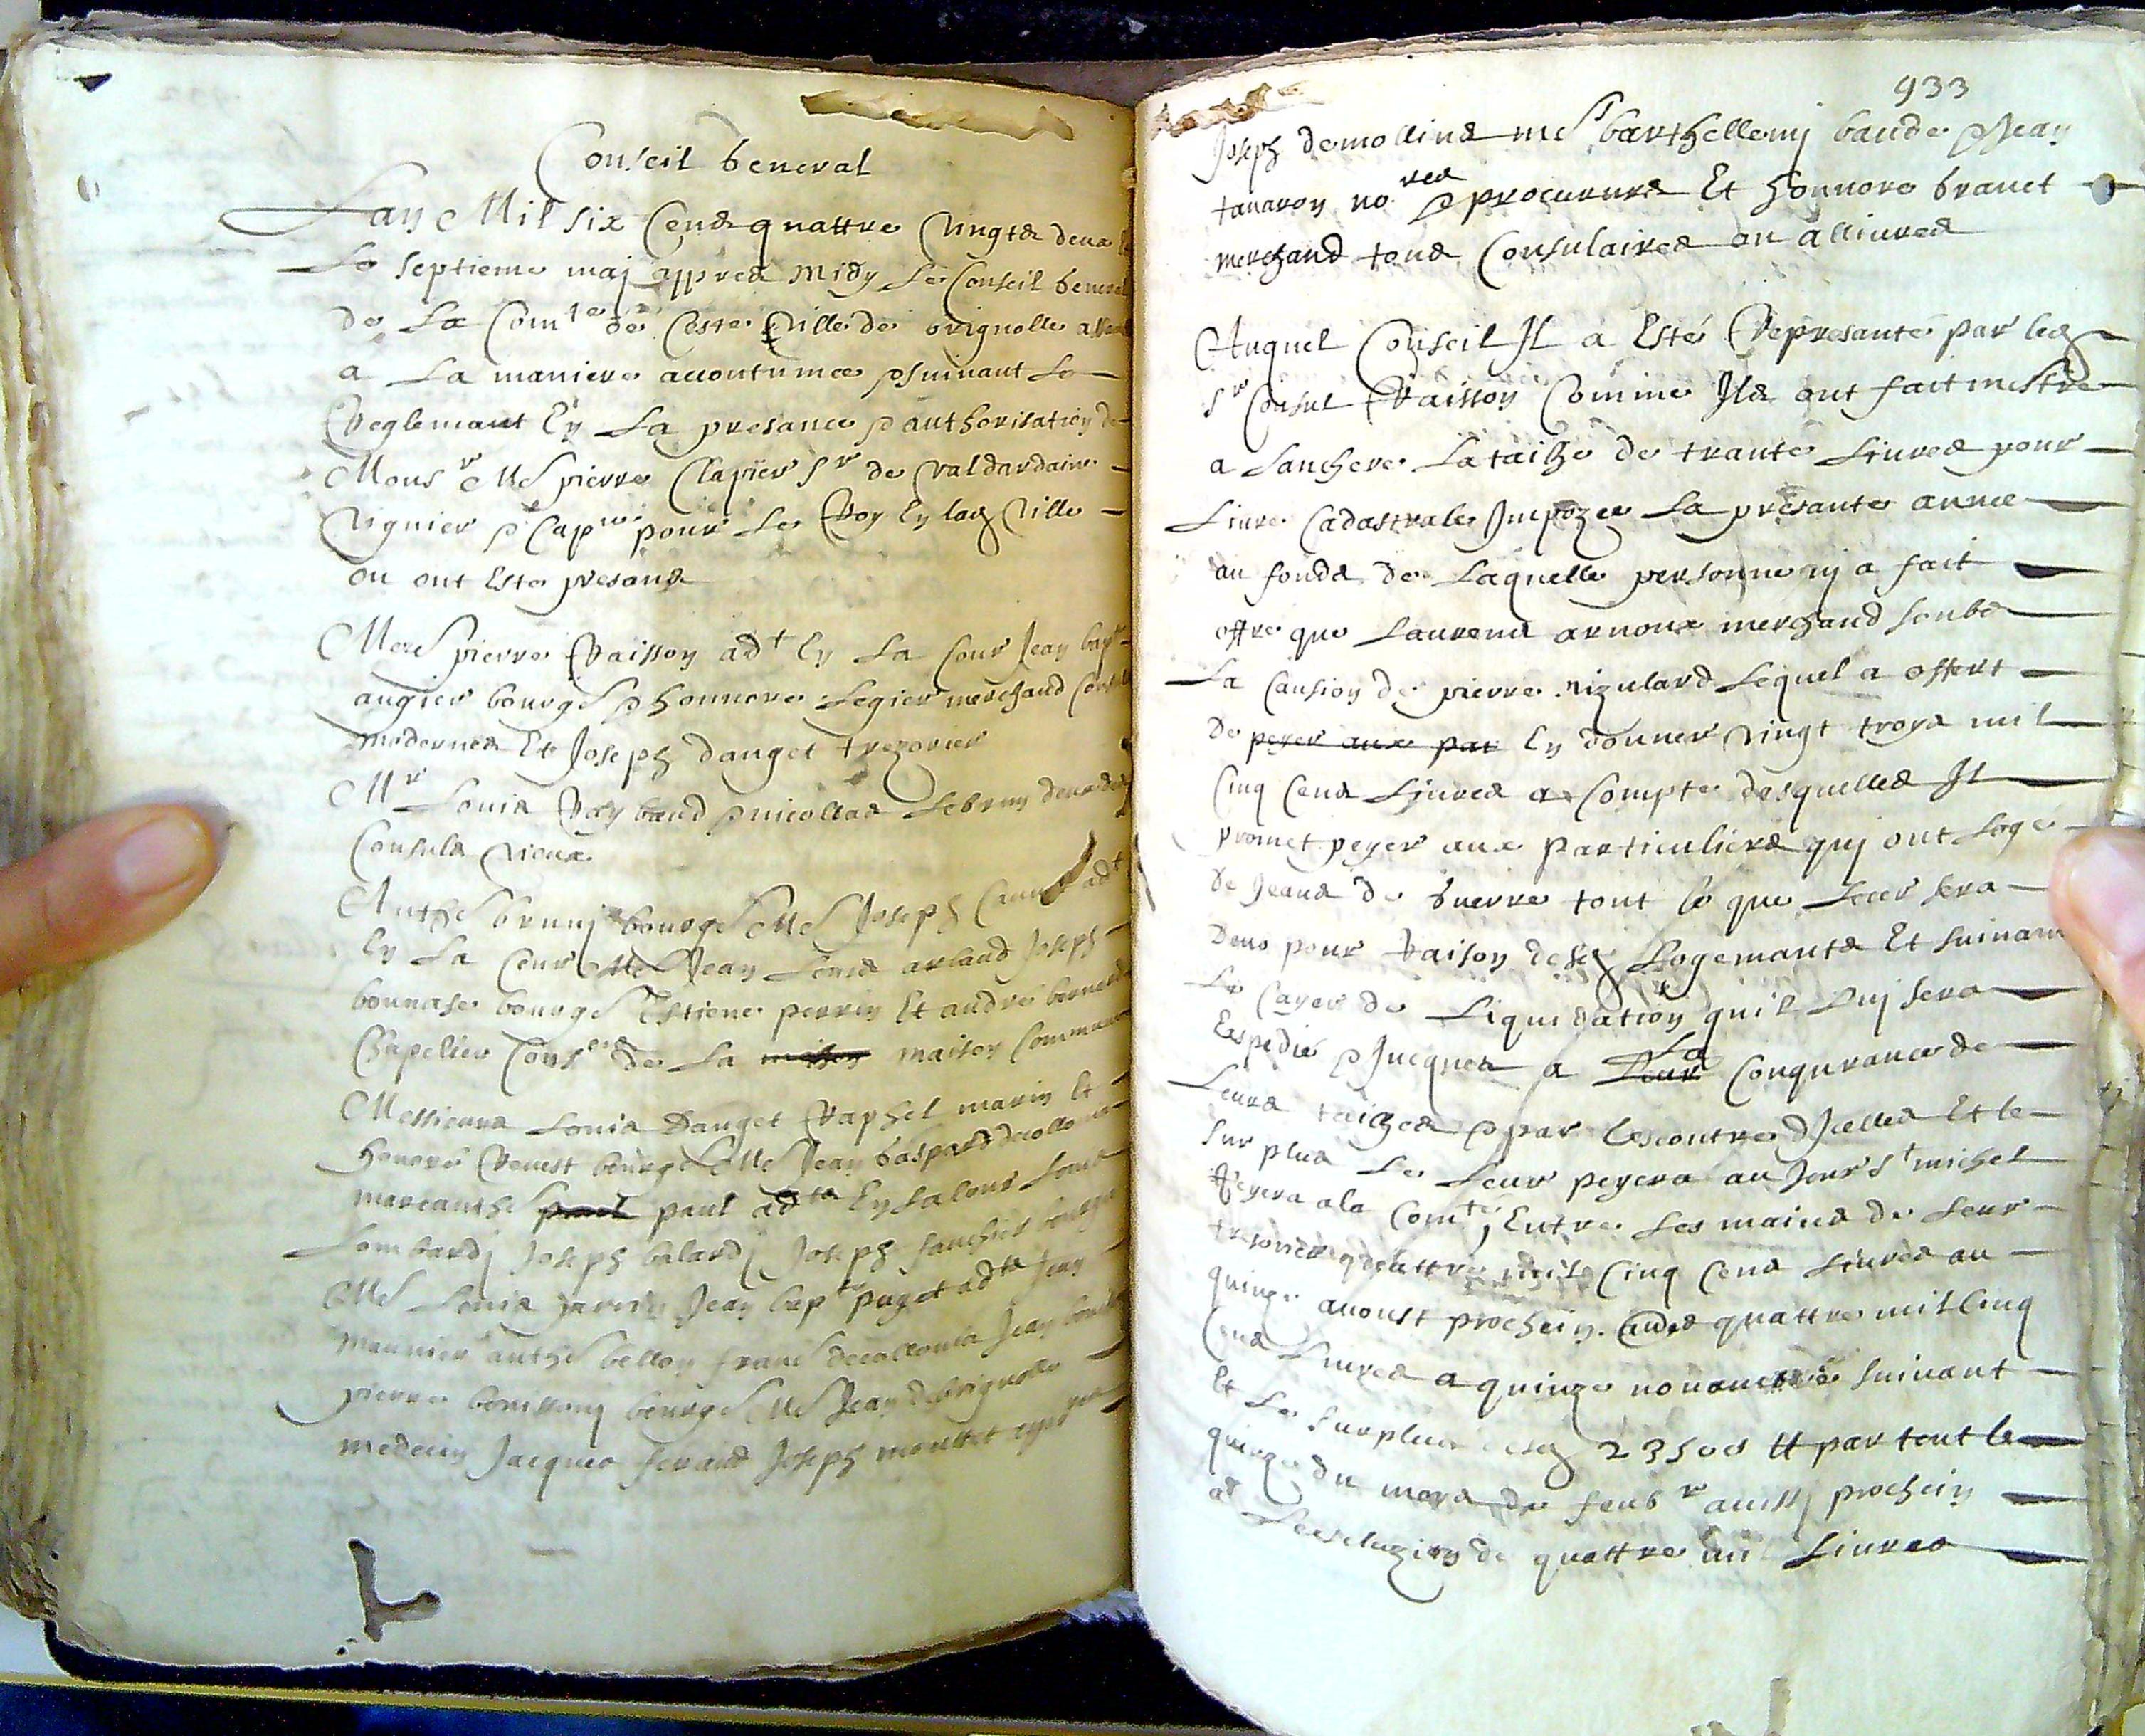 Conseil general
Lan Mil six Cens quattre vingts deux
Le septieme maj appres midy Le Conseil general
de La Com.te de Ceste ville de brignolle
a La maniere accoutumee & suivant Le
Reglemant En La presance & authorisation de
Mons.r Me pierre Clapier S.r de valdardaine
viguier & Cap.ne pour Le Roy En lad ville
ou ont Este presans
Mes pierre Vaisson ad.t En La Cour Jean bap.te
augier bourg. & honnore Legier merchand
modernes Et Joseph dauget trezorier
M.r Louis Raybaud & nicollas Lebrun deux des
Consuls vieux
Anth. brunj bourg. Me Joseph ad.t
En La Cour Me Jean Louis arlaud Joseph
bonnase bourg. Estiene perrin Et andre
Chapelier Cons.ers de La maison Commune
Messieurs Louis Dauget Raphel marin Et
honore Renest bourg. Me Jean gaspard
paul ad.ts En La Cour Louis
Lombardj Joseph balardj Joseph bourg.
Me Louis Jean bap.te puget ad.ts Jean
meunier anth. bellon frans decollonia Jean
pierre bourg. Me Jean debrignolle
medecin Jacques feraud Joseph mouttet
933
Joseph demollins me barthellemj baude & Jean
tanaron no.res & procureurs Et honnore granet
merchand tous Consulaires ou allivres
Auquel Conseil Il a Esté Represanté par les
S.r Consul Vaisson Comme Ils ont fait mestre
a Lanchere La tailhe de trante Livres pour
Livre Cadastrale Impozee La presante annee
au fonds de Laquelle personne nj a fait
offre que Laurens arnoux merchand soubs
La Caution de pierre Lequel a offert
De peyer aux par En donner vingt troys mil
Cinq Cens Livres a Compte desquelles Il
promet peyer aux particuliers quj ont Logé
de Jeans de guerre tout Ce que Leur sera
Deub pour Raison desd Logemants Et suivant
Le Cayer de Liquidation quil Luj sera
Expedié & Jucques a Leur La Conqurance de
Leurs tailhes & par Lescontre dJcelles Et Le
surplus Le Leur peyera au Jour S.t michel
Peyera a la Com.té Entre Les mains de Leur
tresorier quattre mil Cinq Cens Livres au
quinze avoust prochein quattre mil Cinq
Cens Livres a quinze novambre suivant
Et Le surplus desd 23500 ₶ par tout Le
quinze du moys de feub.r aussj prochein
a Lexcluzion de quattre mil Livres